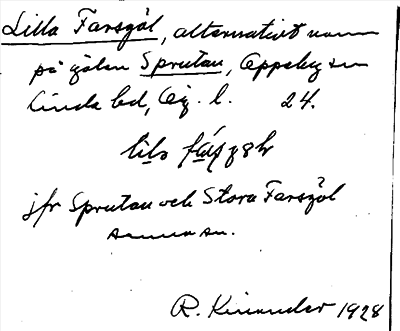 Lilla Farsgöl, alternativt namn
på gölen Sprutan, Uppeby sn
Kinda hd, Ög. l. 24.
jfr Sprutan och Stora Farsgöl
samma sn.
R. Kinander 1928